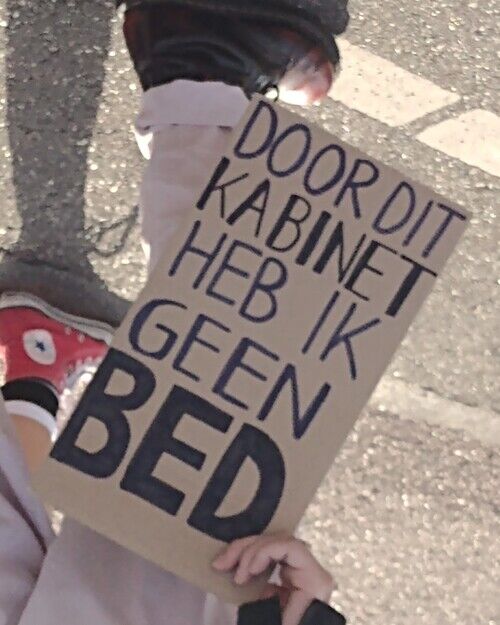 DOOR DIT
KABINET
HEB IK
GEEN
BED